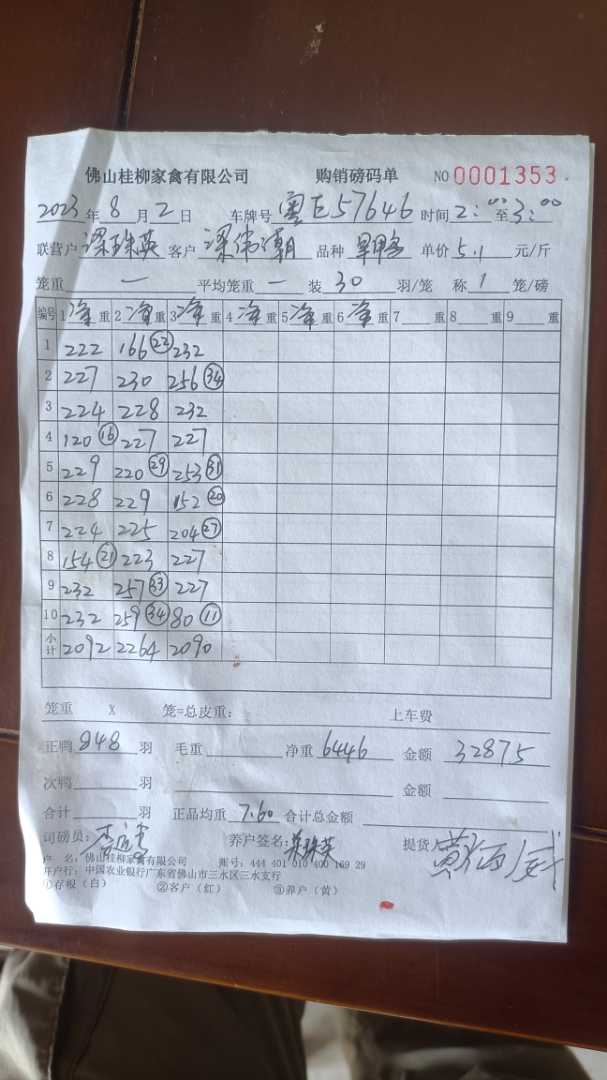 佛山桂柳家禽有限公司 购销磅码单 NO 0001353
2023年8月2日 车牌号 粤E57646 时间2:00至3:00
联营户 梁珠英 客户 梁伟潮 品种 单价5.1元/斤
笼重 一 平均笼重 一 装 30 羽/笼 称 1 笼/磅
编号 1净重 2净重 3净重 4净重 5净重 6净重 7重 8重 9重
1 222 166(22) 232
2 227 230 256(34)
3 224 228 232
4 120(16) 227 227
5 229 220(29) 253(31)
6 228 229 152(20)
7 224 225 204(27)
8 154(21) 223 227
9 232 257(33) 227
10 232 259(34) 80(11)
小计 2092 2264 2090
笼重 X 笼=总皮重: 上车费
正鸭 848 羽 毛重 净重 6446 金额 32875
次鸭 羽 金额
合计 羽 正品均重 7.60 合计总金额
司磅员: 养户签名: 梁珠英 提货人
户 名: 佛山桂柳家禽有限公司 账号: 444 401 010 400 169 29
开户行: 中国农业银行广东省佛山市三水区三水支行
①存根(白) ②客户(红) ③养户(黄)